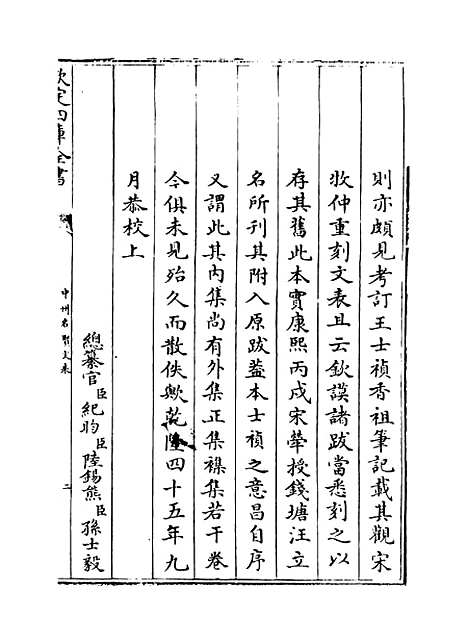 則亦頗見考訂王士禎香祖筆記載其觀宋
牧仲重刻文表且云欽謨諸跋當悉刻之以
存其舊此本實康熙丙戌宋犖授錢塘汪立
名所刊其附入原跋蓋本士禎之意昌自序
又謂此其內集尚有外集正集襍集若干卷
今俱未見殆久而散佚歟乾隆四十五年九
月恭校上
總纂官臣紀昀臣陸錫熊臣孫士毅
欽定四庫全書
中州名賢文表
二